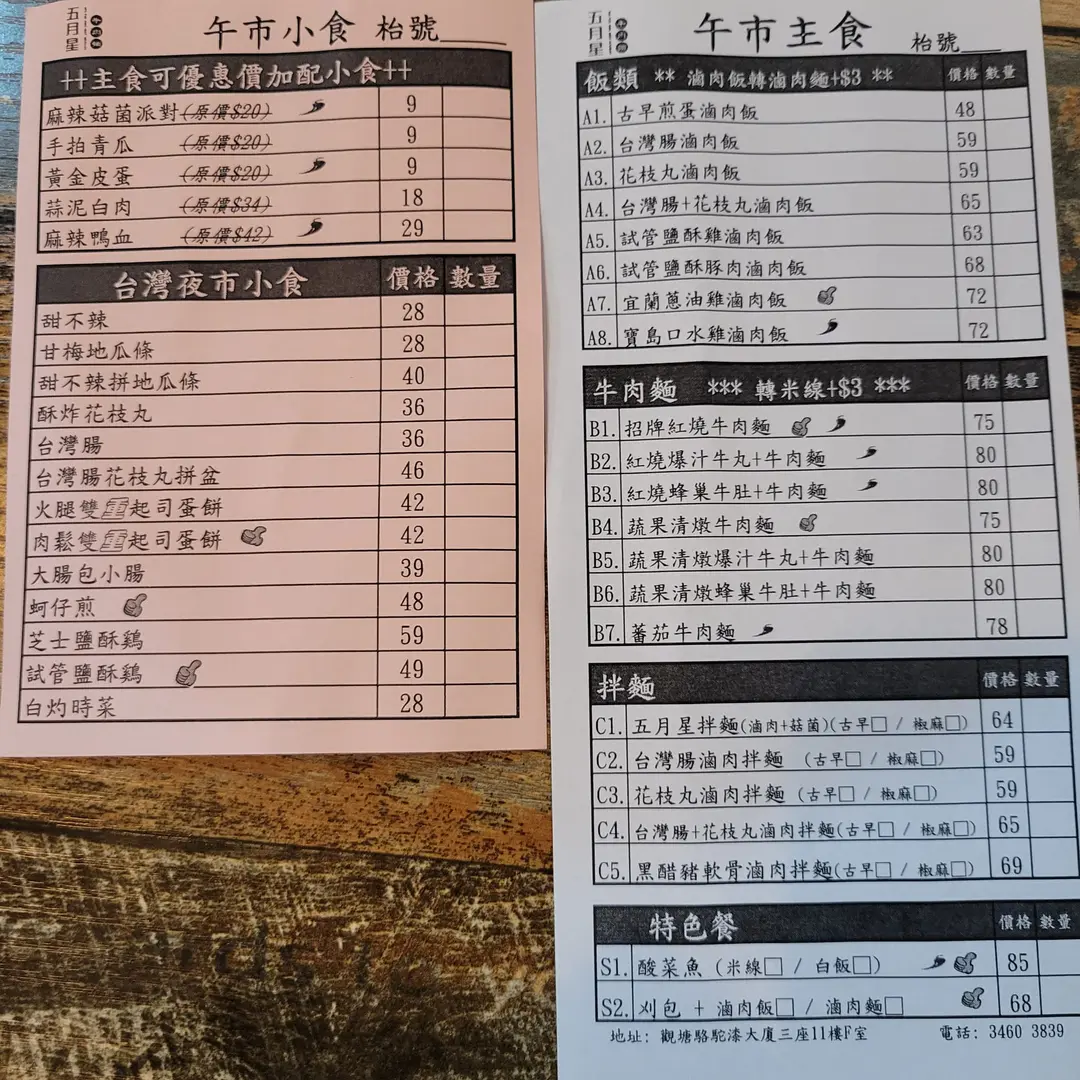 五月星
午市小食 枱號
++主食可優惠價加配小食++
麻辣菇菌派對(原價$20) 9
手拍青瓜 (原價$20) 9
黃金皮蛋 (原價$20) 9
蒜泥白肉 (原價$34) 18
麻辣鴨血 (原價$42) 29
台灣夜市小食 價格 數量
甜不辣 28
甘梅地瓜條 28
甜不辣拼地瓜條 40
酥炸花枝丸 36
台灣腸 36
台灣腸花枝丸拼盆 46
火腿雙重起司蛋餅 42
肉鬆雙重起司蛋餅 42
大腸包小腸 39
蚵仔煎 48
芝士鹽酥鷄 59
試管鹽酥鷄 49
白灼時菜 28
五月星
午市主食 枱號
飯類 ** 滷肉飯轉滷肉麵+$3 ** 價格 數量
A1. 古早煎蛋滷肉飯 48
A2. 台灣腸滷肉飯 59
A3. 花枝丸滷肉飯 59
A4. 台灣腸+花枝丸滷肉飯 65
A5. 試管鹽酥雞滷肉飯 63
A6. 試管鹽酥豚肉滷肉飯 68
A7. 宜蘭蔥油雞滷肉飯 72
A8. 寶島口水雞滷肉飯 72
牛肉麵 *** 轉米線+$3 *** 價格 數量
B1. 招牌紅燒牛肉麵 75
B2. 紅燒爆汁牛丸+牛肉麵 80
B3. 紅燒蜂巢牛肚+牛肉麵 80
B4. 蔬果清燉牛肉麵 75
B5. 蔬果清燉爆汁牛丸+牛肉麵 80
B6. 蔬果清燉蜂巢牛肚+牛肉麵 80
B7. 蕃茄牛肉麵 78
拌麵 價格 數量
C1. 五月星拌麵(滷肉+菇菌)(古早□ / 椒麻□) 64
C2. 台灣腸滷肉拌麵 (古早□ / 椒麻□) 59
C3. 花枝丸滷肉拌麵 (古早□ / 椒麻□) 59
C4. 台灣腸+花枝丸滷肉拌麵(古早□ / 椒麻□) 65
C5. 黑醋豬軟骨滷肉拌麵(古早□ / 椒麻□) 69
特色餐 價格 數量
S1. 酸菜魚 (米線□ / 白飯□) 85
S2. 刈包 + 滷肉飯□ / 滷肉麵□ 68
地址: 觀塘駱駝漆大廈三座11樓F室 電話: 3460 3839